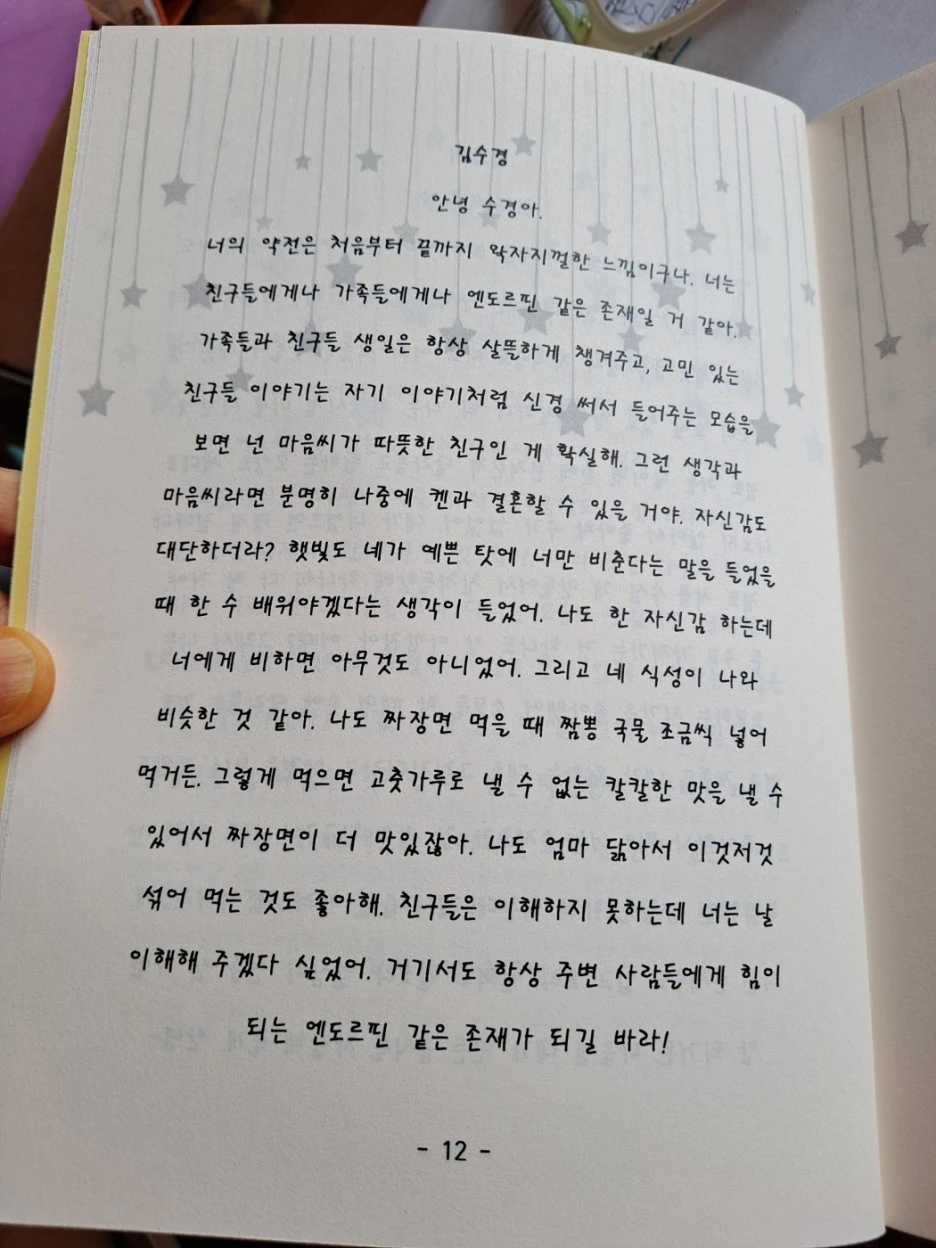 김수경
안녕 수경아.
너의 약전은 처음부터 끝까지 왁자지껄한 느낌이구나. 너는
친구들에게나 가족들에게나 엔도르핀 같은 존재일 거 같아.
가족들과 친구들 생일은 항상 살뜰하게 챙겨주고, 고민 있는
친구들 이야기는 자기 이야기처럼 신경 써서 들어주는 모습을
보면 넌 마음씨가 따뜻한 친구인 게 확실해. 그런 생각과
마음씨라면 분명히 나중에 켄과 결혼할 수 있을 거야. 자신감도
대단하더라? 햇빛도 네가 예쁜 탓에 너만 비춘다는 말을 들었을
때 한 수 배워야겠다는 생각이 들었어. 나도 한 자신감 하는데
너에게 비하면 아무것도 아니었어. 그리고 네 식성이 나와
비슷한 것 같아. 나도 짜장면 먹을 때 짬뽕 국물 조금씩 넣어
먹거든. 그렇게 먹으면 고춧가루로 낼 수 없는 칼칼한 맛을 낼 수
있어서 짜장면이 더 맛있잖아. 나도 엄마 닮아서 이것저것
섞어 먹는 것도 좋아해. 친구들은 이해하지 못하는데 너는 날
이해해 주겠다 싶었어. 거기서도 항상 주변 사람들에게 힘이
되는 엔도르핀 같은 존재가 되길 바라!
- 12 -